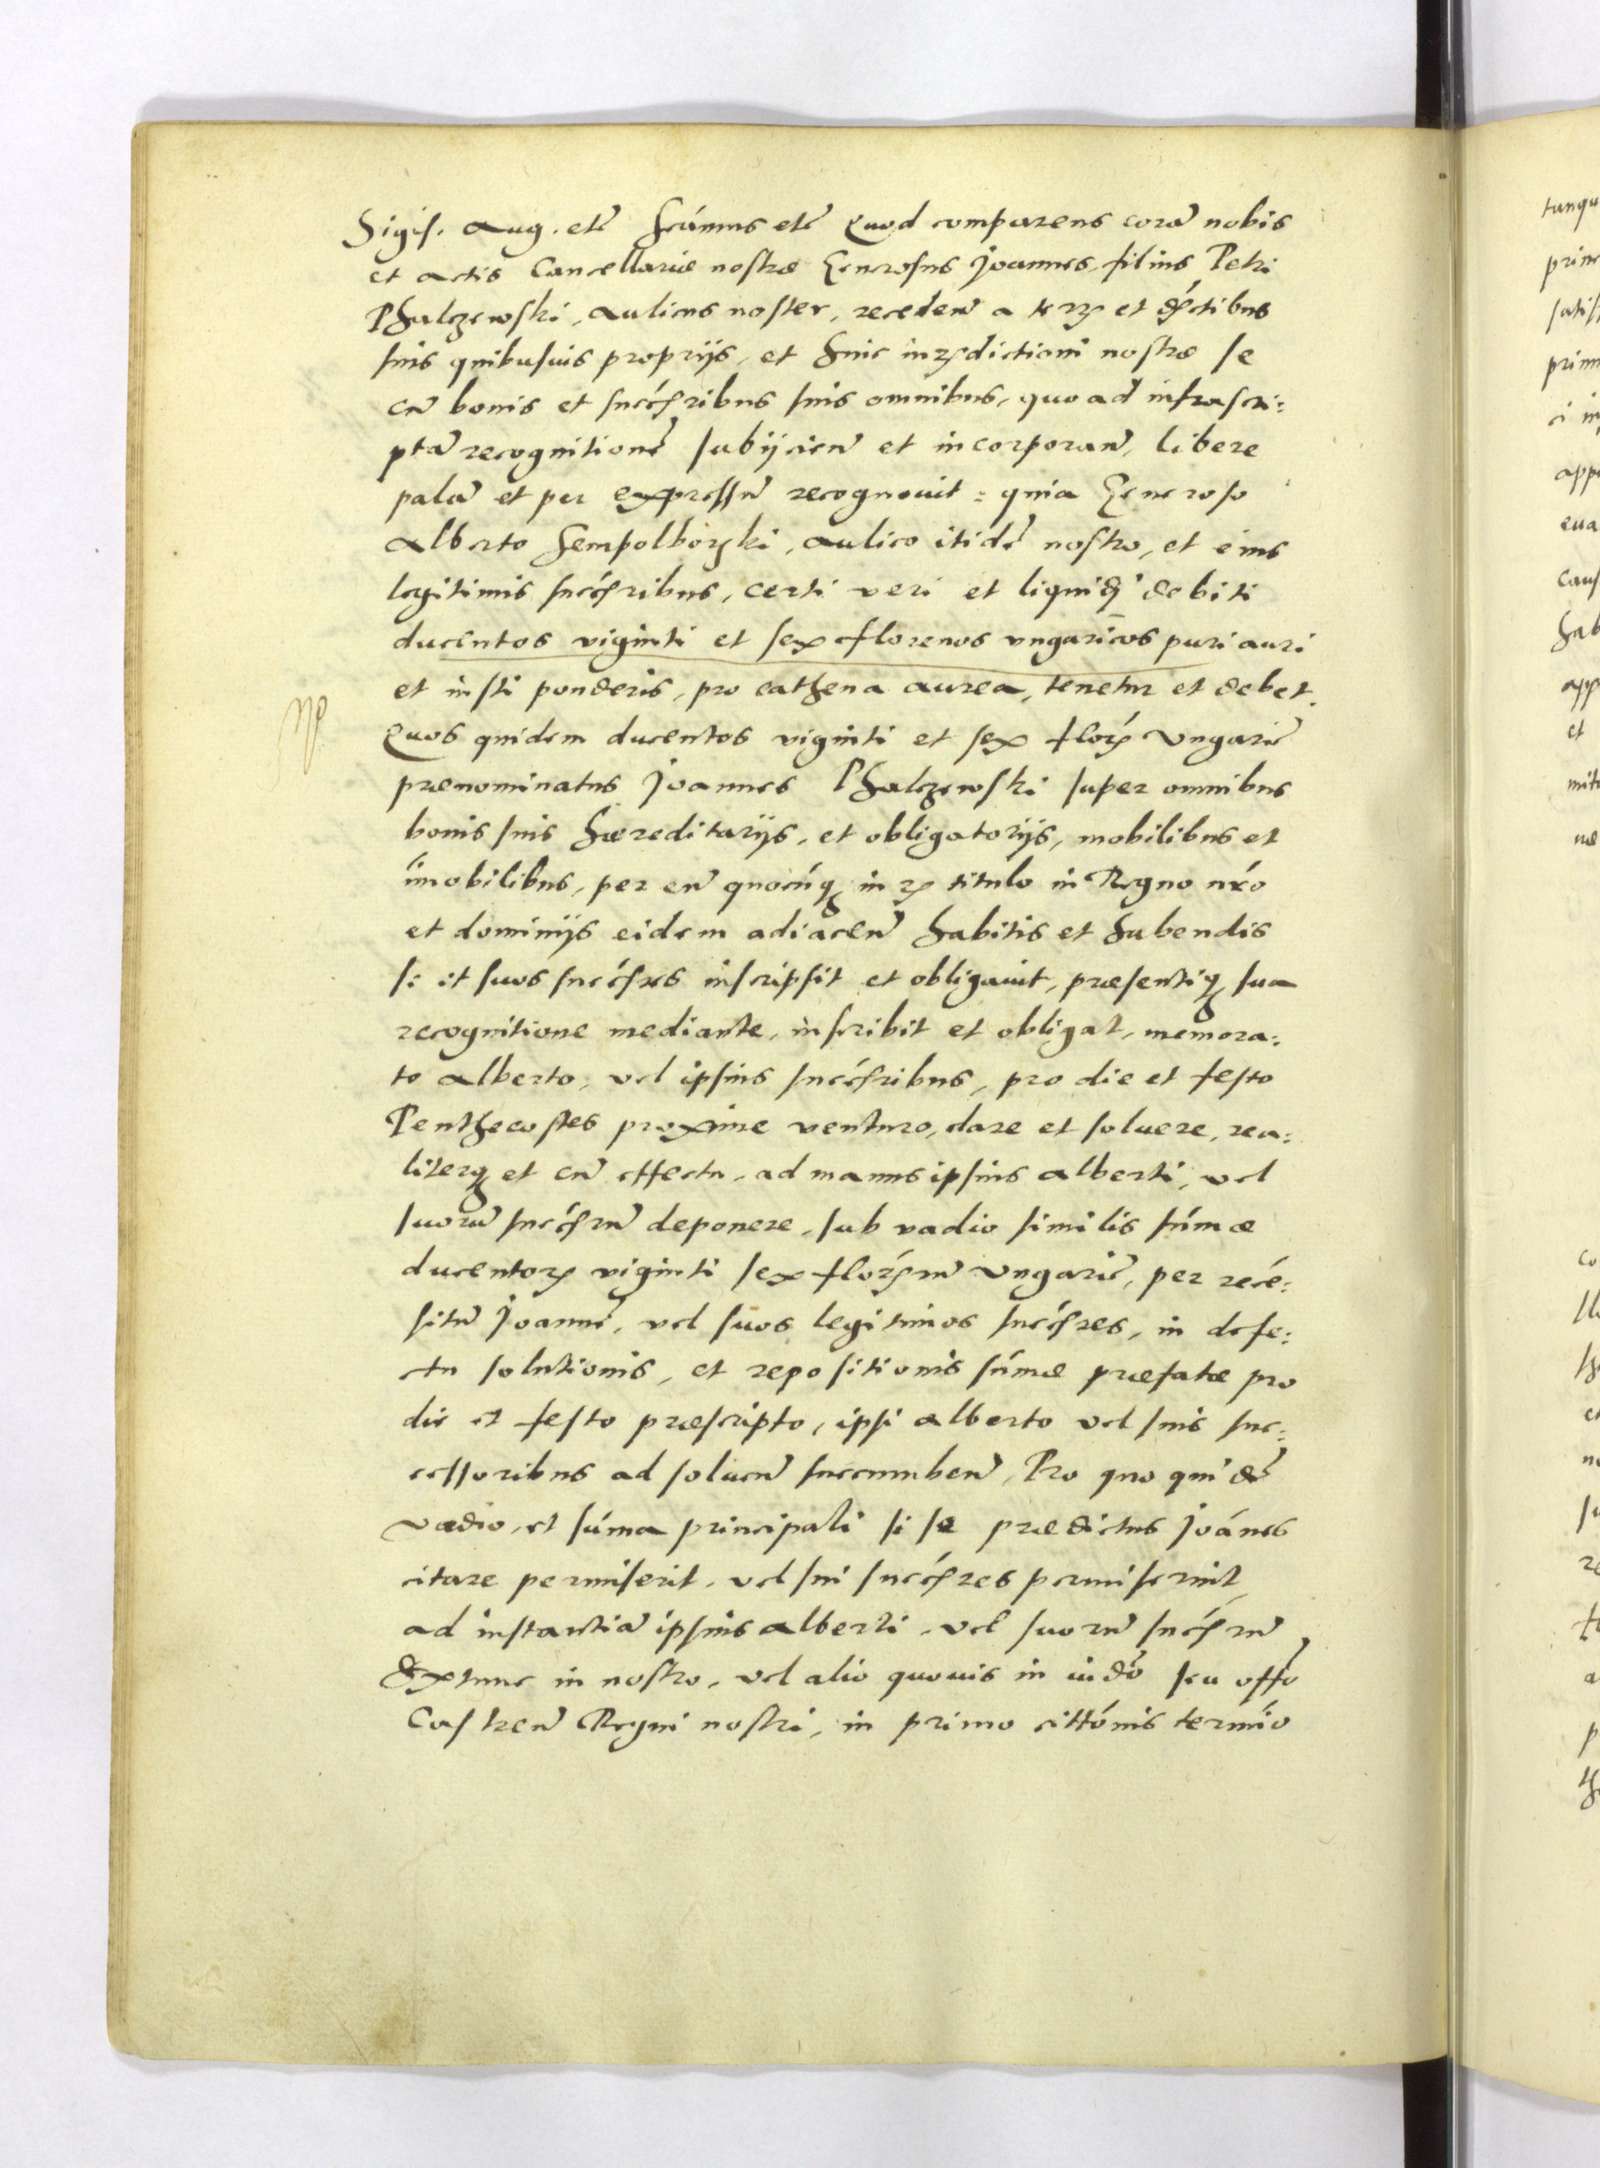 Sigis. Aug. etc̃ Scim̃us etc̃ Quod comparens corã nobis
et actis Cancellariæ nostræ Generosus Joannes filius Petri
Phalczewski, aulicus noster, recedeñ a terr̃ et districtibus
suis quibusuis proprijs, et huic iurisdictioni nostræ se
cũ bonis et succ̃ribus suis omnibus, quo ad infrascri:
ptã recognitionẽ subijcieñ et incorporañ, libere
palã et per expressũ recognouit: quia Generoso
Alberto Sempolborski, aulico itidẽ nostro, et eius
legitimis succ̃ribus, certi veri et liquidi debiti
ducentos viginti et sex florenos vngaricos puri auri
et iusti ponderis, pro cathena aurea, tenetur et debet.
Quos quidem ducentos viginti et sex flor̃ Vngaric̃
prænominatus Joannes Phalczewski super omnibus
bonis suis hæreditarijs, et obligatorijs, mobilibus et
im̃obilibus, per eũ quocũq iur̃ titulo in Regno nr̃o
et dominijs eidem adiaceñ habitis et habendis
se et suos succ̃res inscripsit et obligauit, præsentiq sua
recognitione mediante, inscribit et obligat, memora:
to Alberto, vel ipsius succ̃ribus, pro die et festo
Penthecostes proxime venturo, dare et soluere, rea:
literq et cũ effectu, ad manus ipsius Alberti, vel
suorũ succ̃rũ deponere, sub vadio similis sum̃æ
ducentor̃ viginti sex flor̃rũ Vngaric̃, per
Joannẽ, vel suos legitimos succ̃res, in defe:
ctu solutionis, et repositionis sum̃æ præfatæ pro
die et festo præscripto, ipsi Alberto vel suis suc:
cessoribus ad solueñ succumbeñ, Pro quo quidẽ
vadio, et sum̃a principali si se prædictus Joãnes
citare permiserit, vel sui succ̃res permiserint
ad instantiã ipsius Alberti, vel suorũ succ̃rũ
Extunc in nostro, vel alio quouis in iudõ seu offõ
Castreñ Regni nostri, in primo cittõnis termĩo